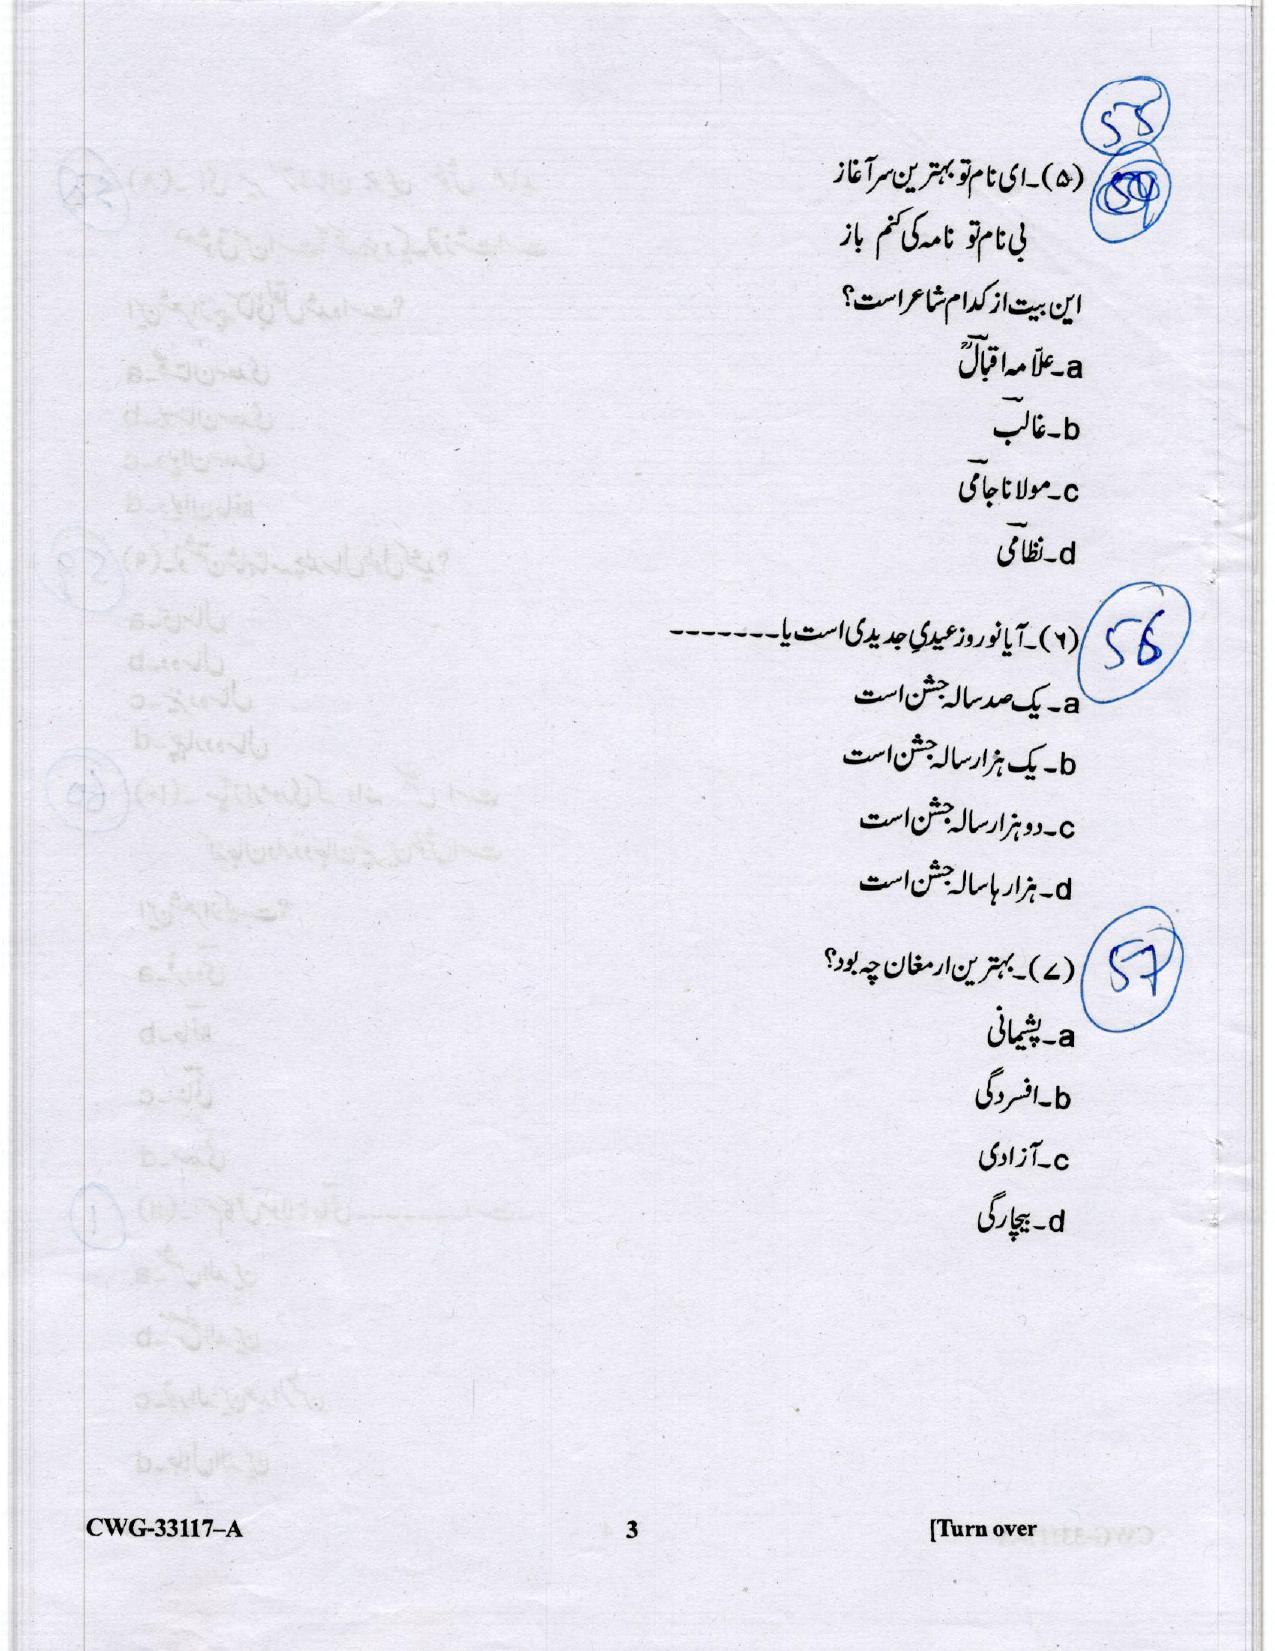 55
(۵)۔ای نام تو بہترین سر آغاز
بی نام تو نامہ کی کنم باز
این بیت از کدام شاعر است؟
a۔علاّمہ اقبالؒ
b۔غالب
c۔مولانا جامی
d۔نظامی
(۶)۔آیا نوروز عیدیِ جدیدی است یا۔------- 56
a۔یک صد سالہ جشن است
b۔یک ہزار سالہ جشن است
c۔دو ہزار سالہ جشن است
d۔ہزار ہا سالہ جشن است
(۷)۔بہترین ارمغان چہ بود؟ 57
a۔پشیمانی
b۔افسردگی
c۔آزادی
d۔بیچارگی
CWG-33117–A 3 [Turn over